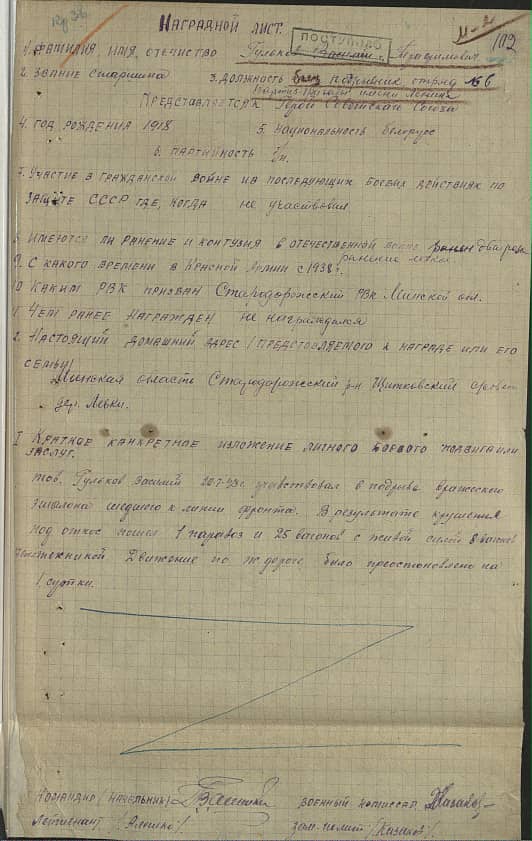 НАГРАДНОЙ ЛИСТ.
ПОСТУПИЛО
102
1. ФАМИЛИЯ, ИМЯ, ОТЕЧЕСТВО Гульков Василий Трофимович
2. ЗВАНИЕ старшина 3. ДОЛЖНОСТЬ боец подрывник отряд №6
имени Ленина
ПРЕДСТАВЛЯЕТСЯ К Герой Советского Союза
4. ГОД РОЖДЕНИЯ 1918 5. НАЦИОНАЛЬНОСТЬ белорус
6. ПАРТИЙНОСТЬ б/п.
7. УЧАСТИЕ В ГРАЖДАНСКОЙ ВОЙНЕ И В ПОСЛЕДУЮЩИХ БОЕВЫХ ДЕЙСТВИЯХ ПО
ЗАЩИТЕ СССР ГДЕ, КОГДА не участвовал
8. ИМЕЮТСЯ ЛИ РАНЕНИЕ И КОНТУЗИЯ В ОТЕЧЕСТВЕННОЙ ВОЙНЕ два раза
ранение легкое
9. С КАКОГО ВРЕМЕНИ В КРАСНОЙ АРМИИ с 1938 г.
10 КАКИМ РВК ПРИЗВАН Стародорожский РВК Минской обл.
11. ЧЕМ РАНЕЕ НАГРАЖДЕН не награждался
2. НАСТОЯЩИЙ ДОМАШНИЙ АДРЕС /ПРЕДСТОВЛЯЕМОГО К НАГРАДЕ ИЛИ ЕГО
СЕМЬИ/
Минская область Стародорожский р-н Щитковский с/совет
дер. Левки.
I КРАТКОЕ КАНКРЕТНОЕ ИЗЛОЖЕНИЕ ЛИЧНОГО БОЕВОГО ПОДВИГА ИЛИ
ЗАСЛУГ.
тов. Гульков Василий учавствовал в подрыве вражеского
эшалона шедшего к линии фронта. В результате крушения
под откос пошел 1 паравоз и 25 вагонов с живой силой 8 вагонов
техникой Движение по ж дороге было преостоновлено на
1 сутки.
КОМАНДИР /НАЧАЛЬНИК/ ВОЕННЫЙ КОМИССАР Казаков
Лейтенант зам. полит /Казаков/